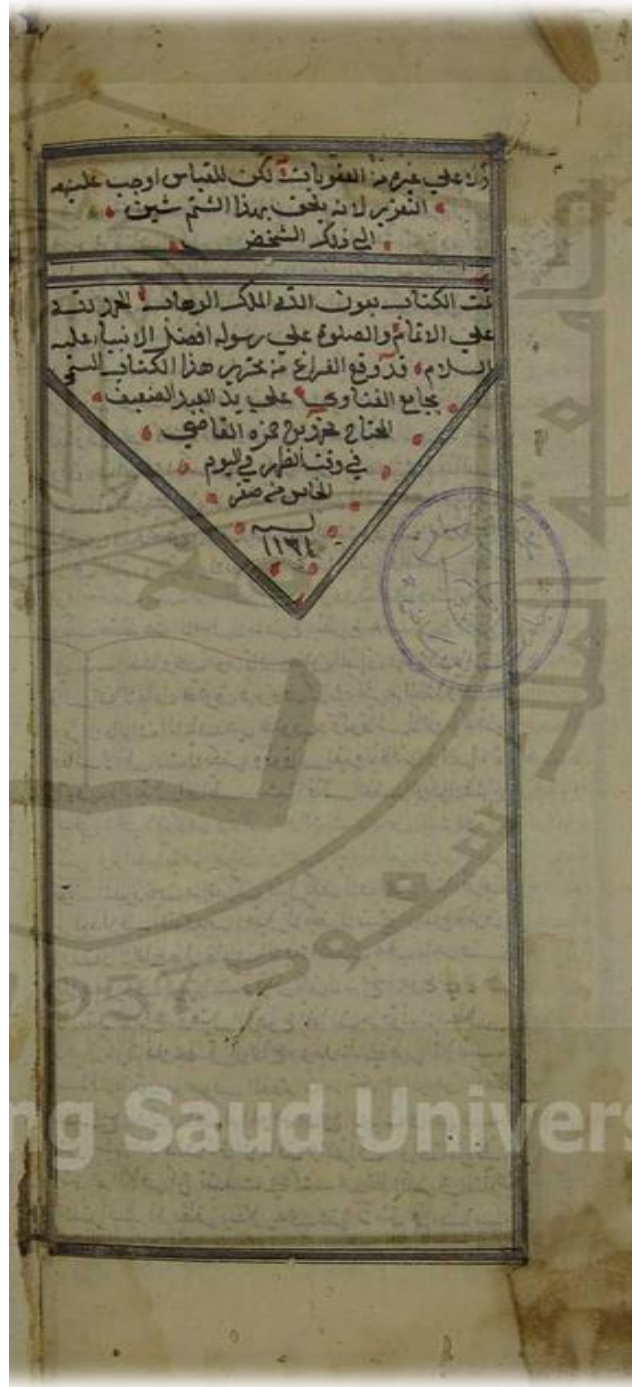 ولا علي غيره من العقوبات لكن للقياس اوجب عليهم
التعزير لانه يلحق بهذا الشتم شين
الي ذلك الشخص
تمت الكتاب بعون الله الملك الوهاب الحمد لله
علي الاتمام والصلوة علي رسوله افضل الانبياء عليه
السلام قد وقع الفراغ من تحرير هذا الكتاب المسمي
بجامع الفتاوي علي يد العبد الضعيف
المحتاج محمد بن حمزه القاضي
في وقت الظهر في اليوم
الخامس من صفر
لسنه
King Saud Univers
1957